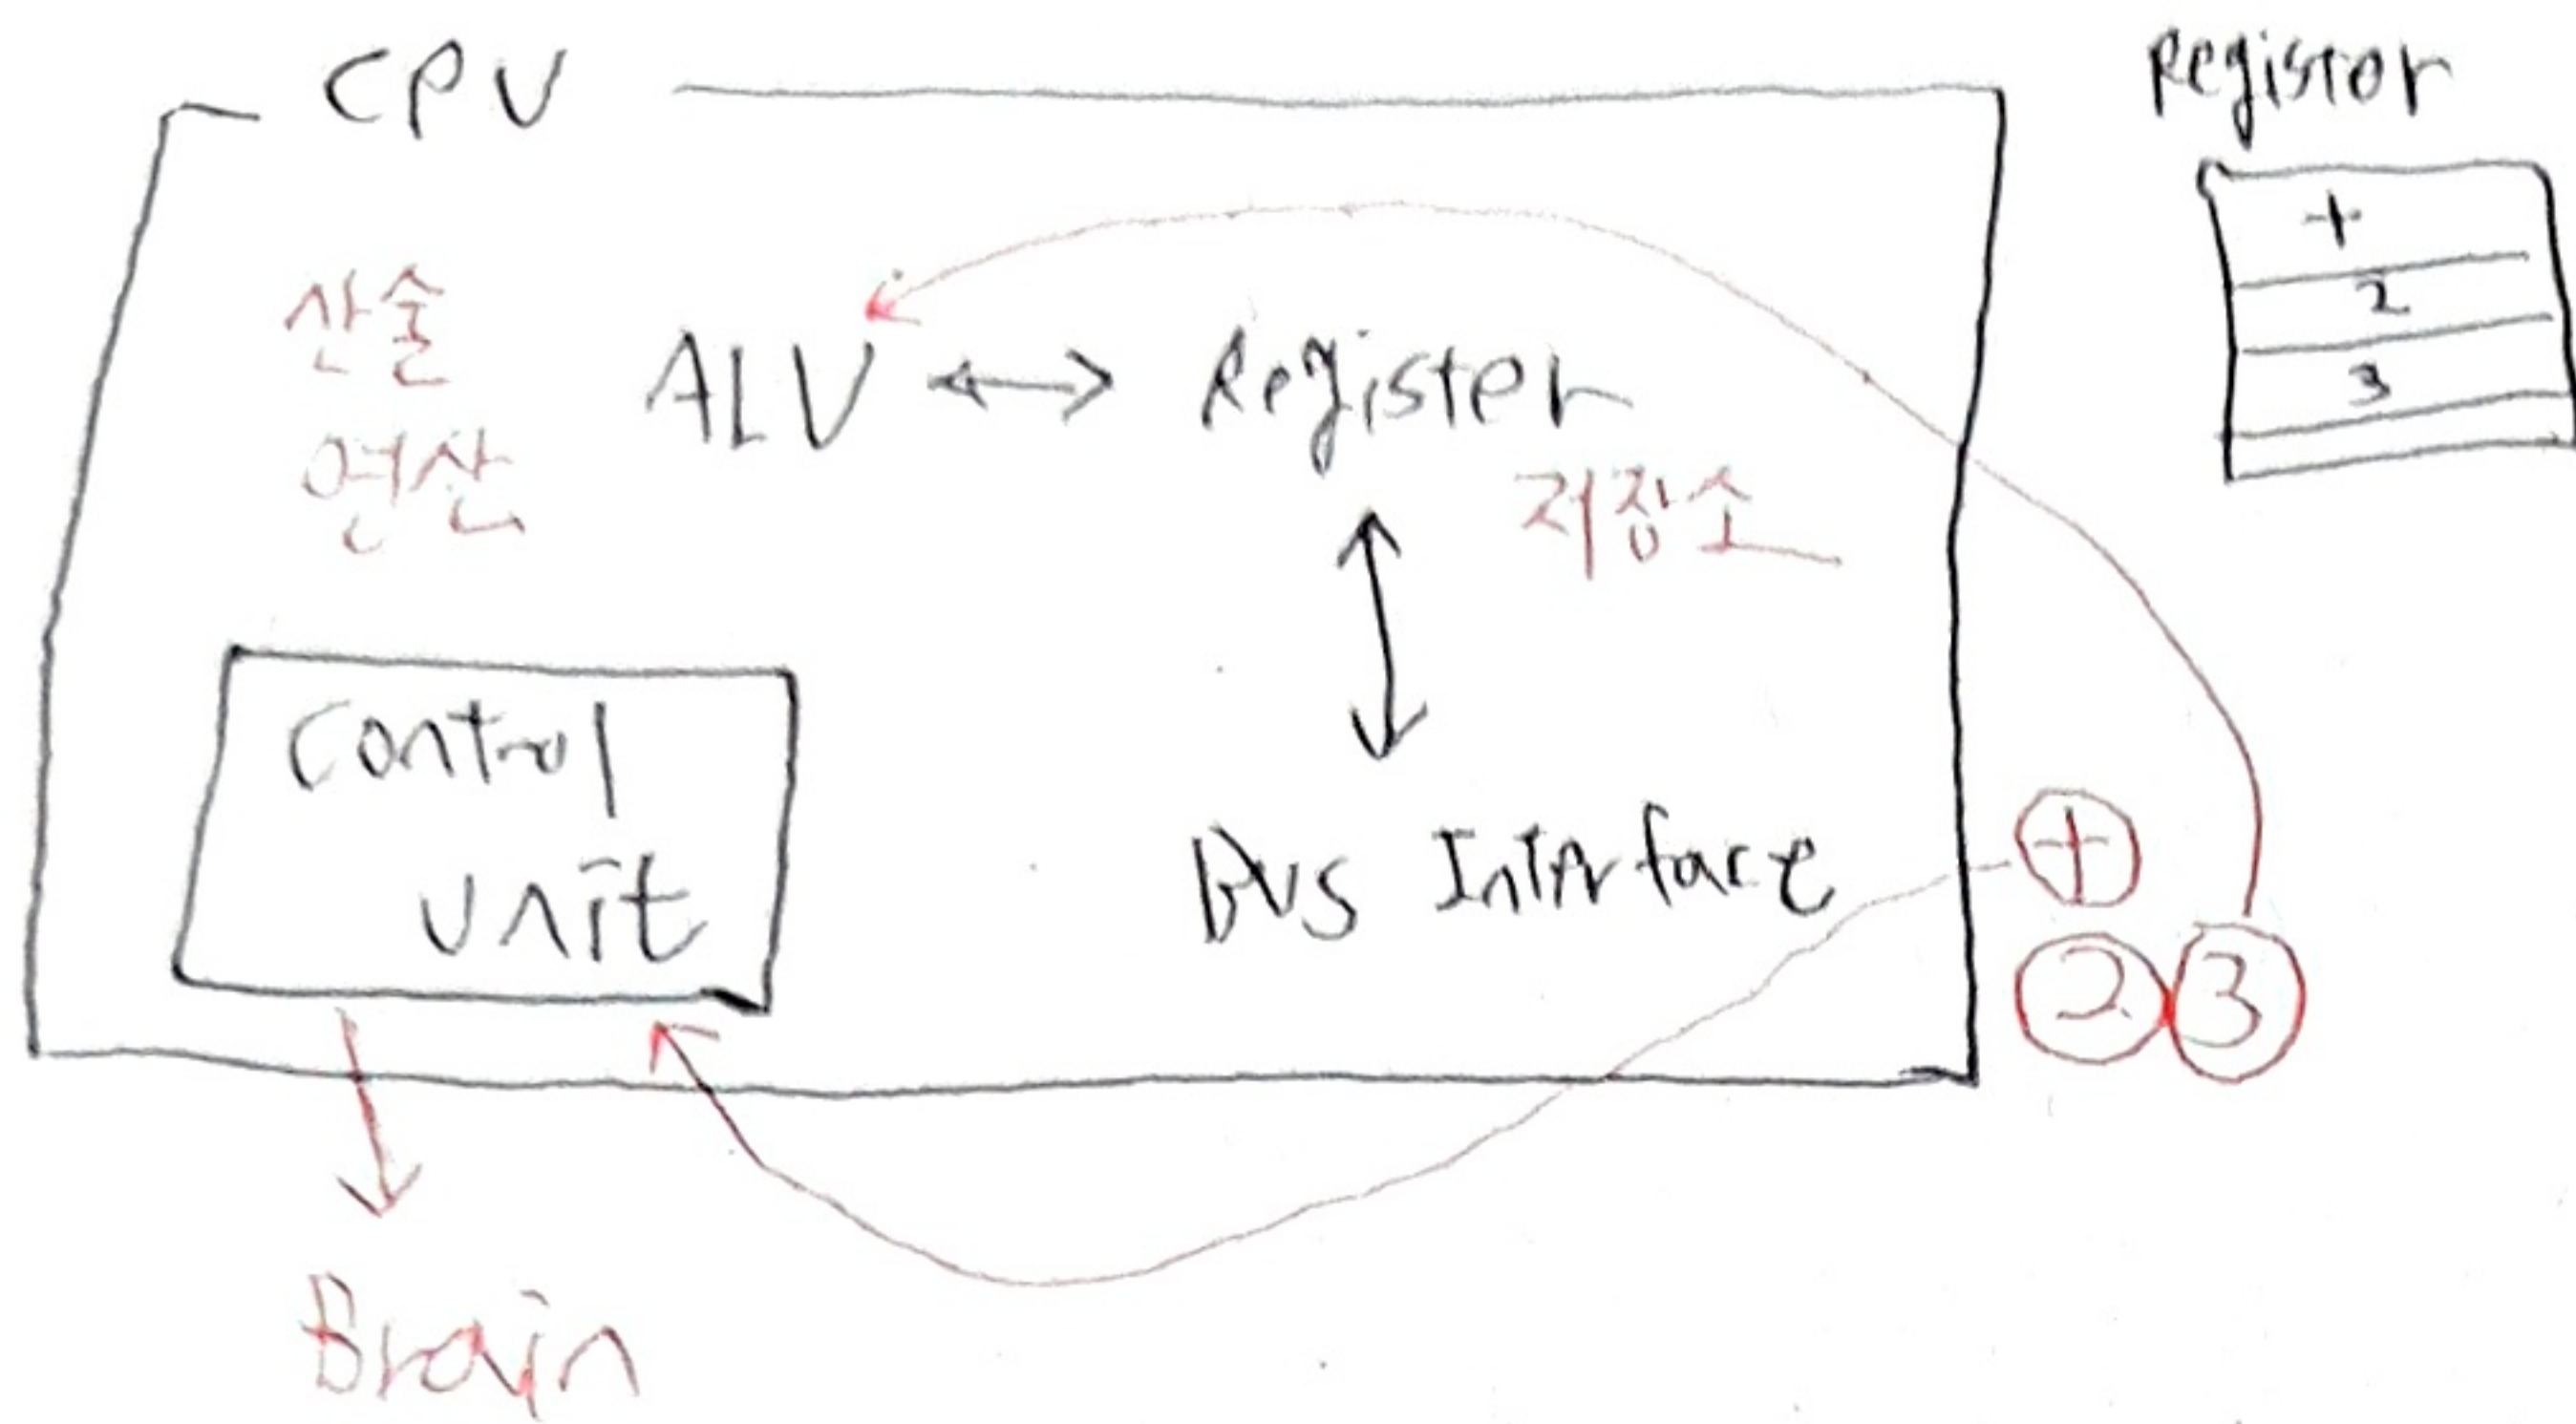 CPU
Registor
+
2
3
산술
연산
ALU ↔ Register
저장소
Control
Unit
Bus Interface
+
2 3
Brain